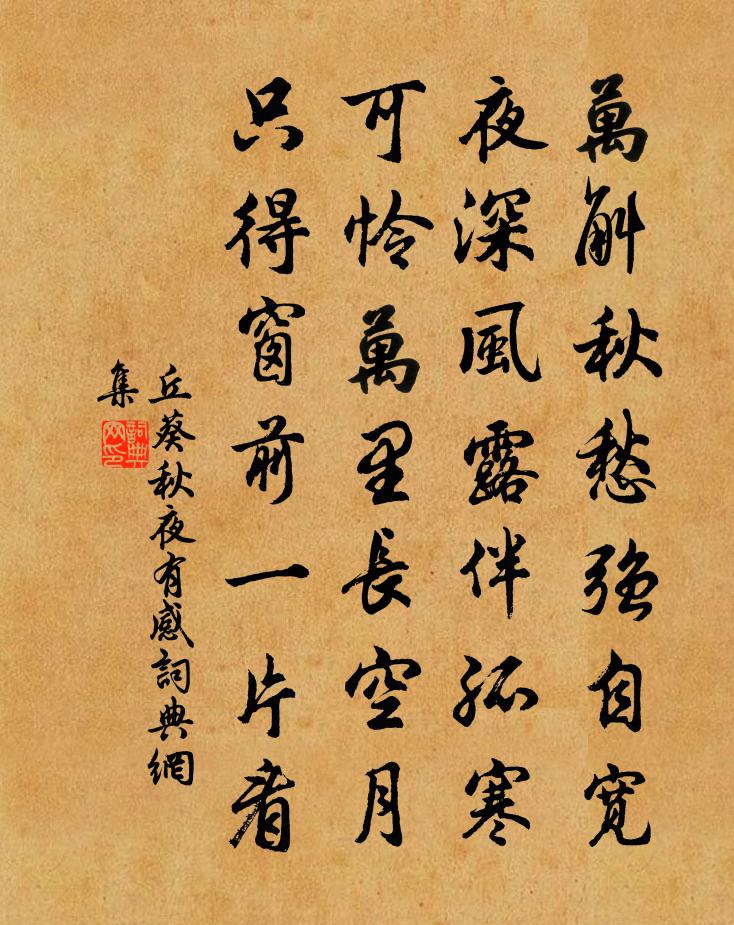 萬斛秋愁強自寬
夜深風露伴孤寒
可憐萬里長空月
只得窗前一片看
丘葵秋夜有感詞典網
集
詞典
网印